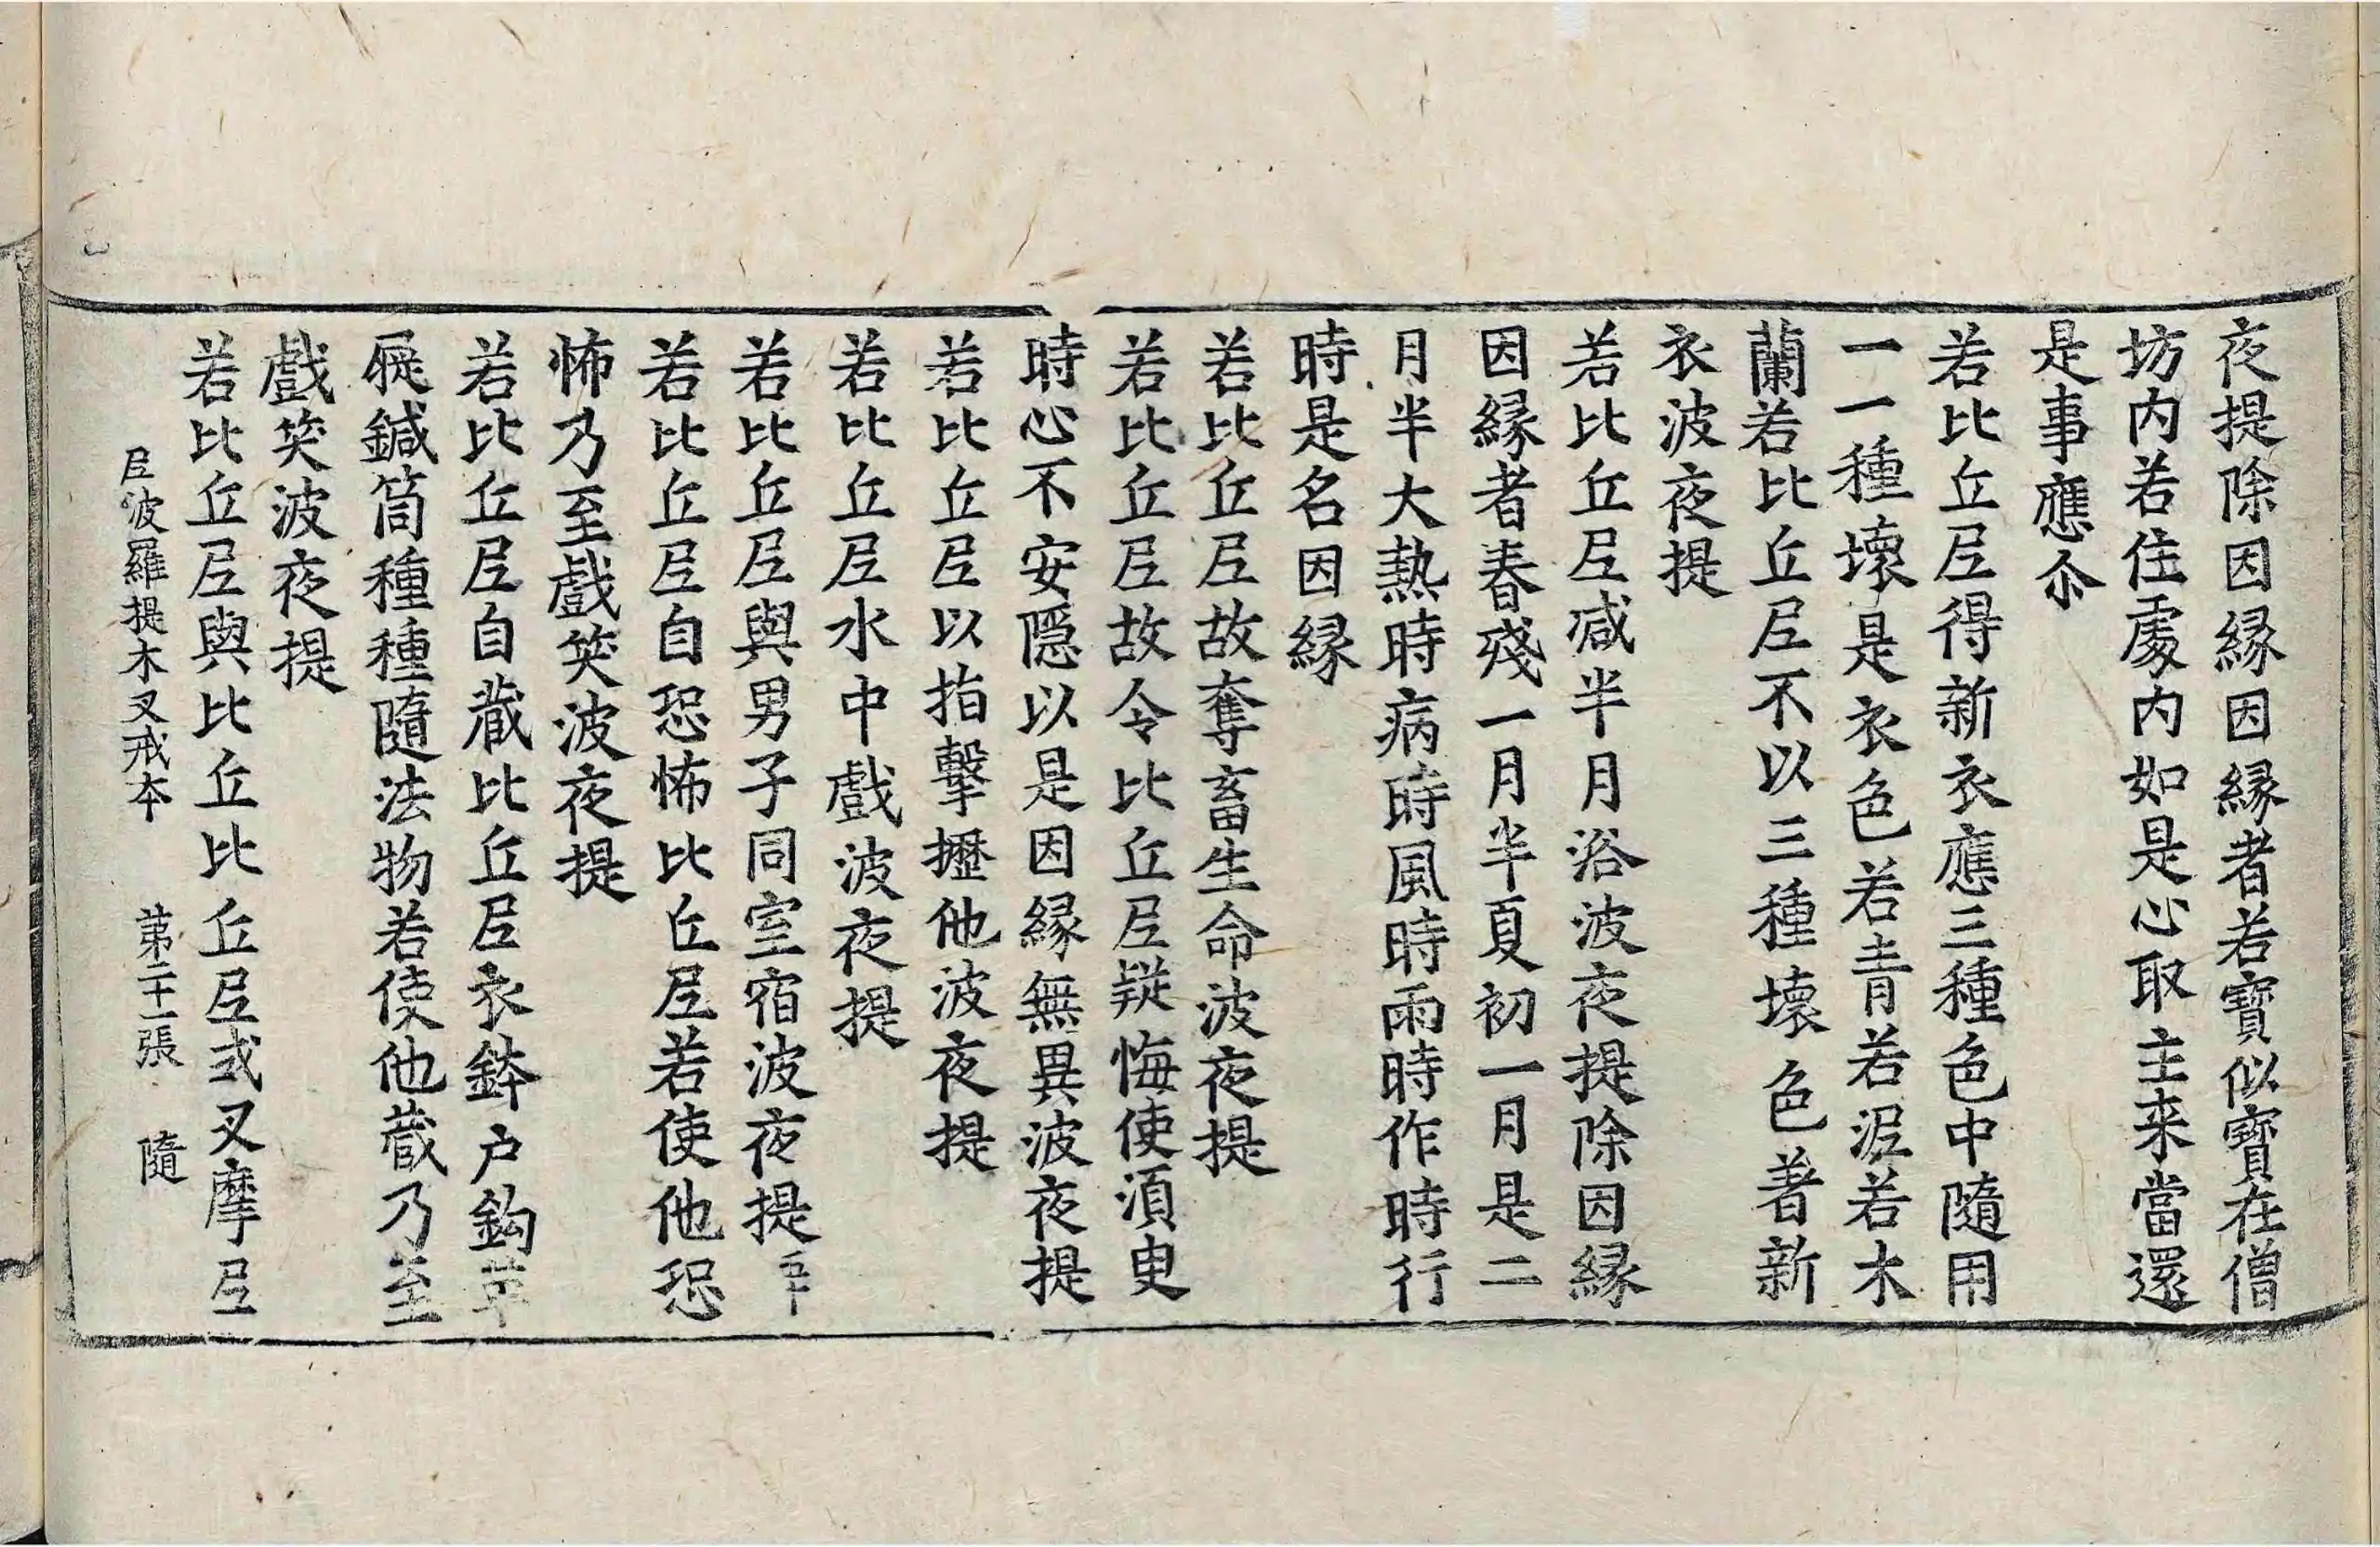 夜提除因縁因縁者若寳似寳在僧
坊内若住處内如是心取主来當還
是事應尒
若比丘尼得新衣應三種色中隨用
一一種壞是衣色若青若泥若木
蘭若比丘尼不以三種壞色著新
衣波夜提
若比丘尼减半月浴波夜提除因縁
因縁者春殘一月半夏初一月是二
月半大熱時病時風時雨時作時行
時是名因縁
若比丘尼故奪畜生命波夜提
若比丘尼故令比丘尼疑悔使湏臾
時心不安隠以是因縁無異波夜提
若比丘尼以指擊攊他波夜提
若比丘尼水中戲波夜提
若比丘尼與男子同室宿波夜提五十
若比丘尼自恐怖比丘尼若使他恐
怖乃至戲笑波夜提
若比丘尼自蔵比丘尼衣鉢户鈎革
屣鍼筒種種隨法物若使他蔵乃至
戲笑波夜提
若比丘尼與比丘比丘尼式叉摩尼
尼波羅提木叉戒本 第二十一張 隨